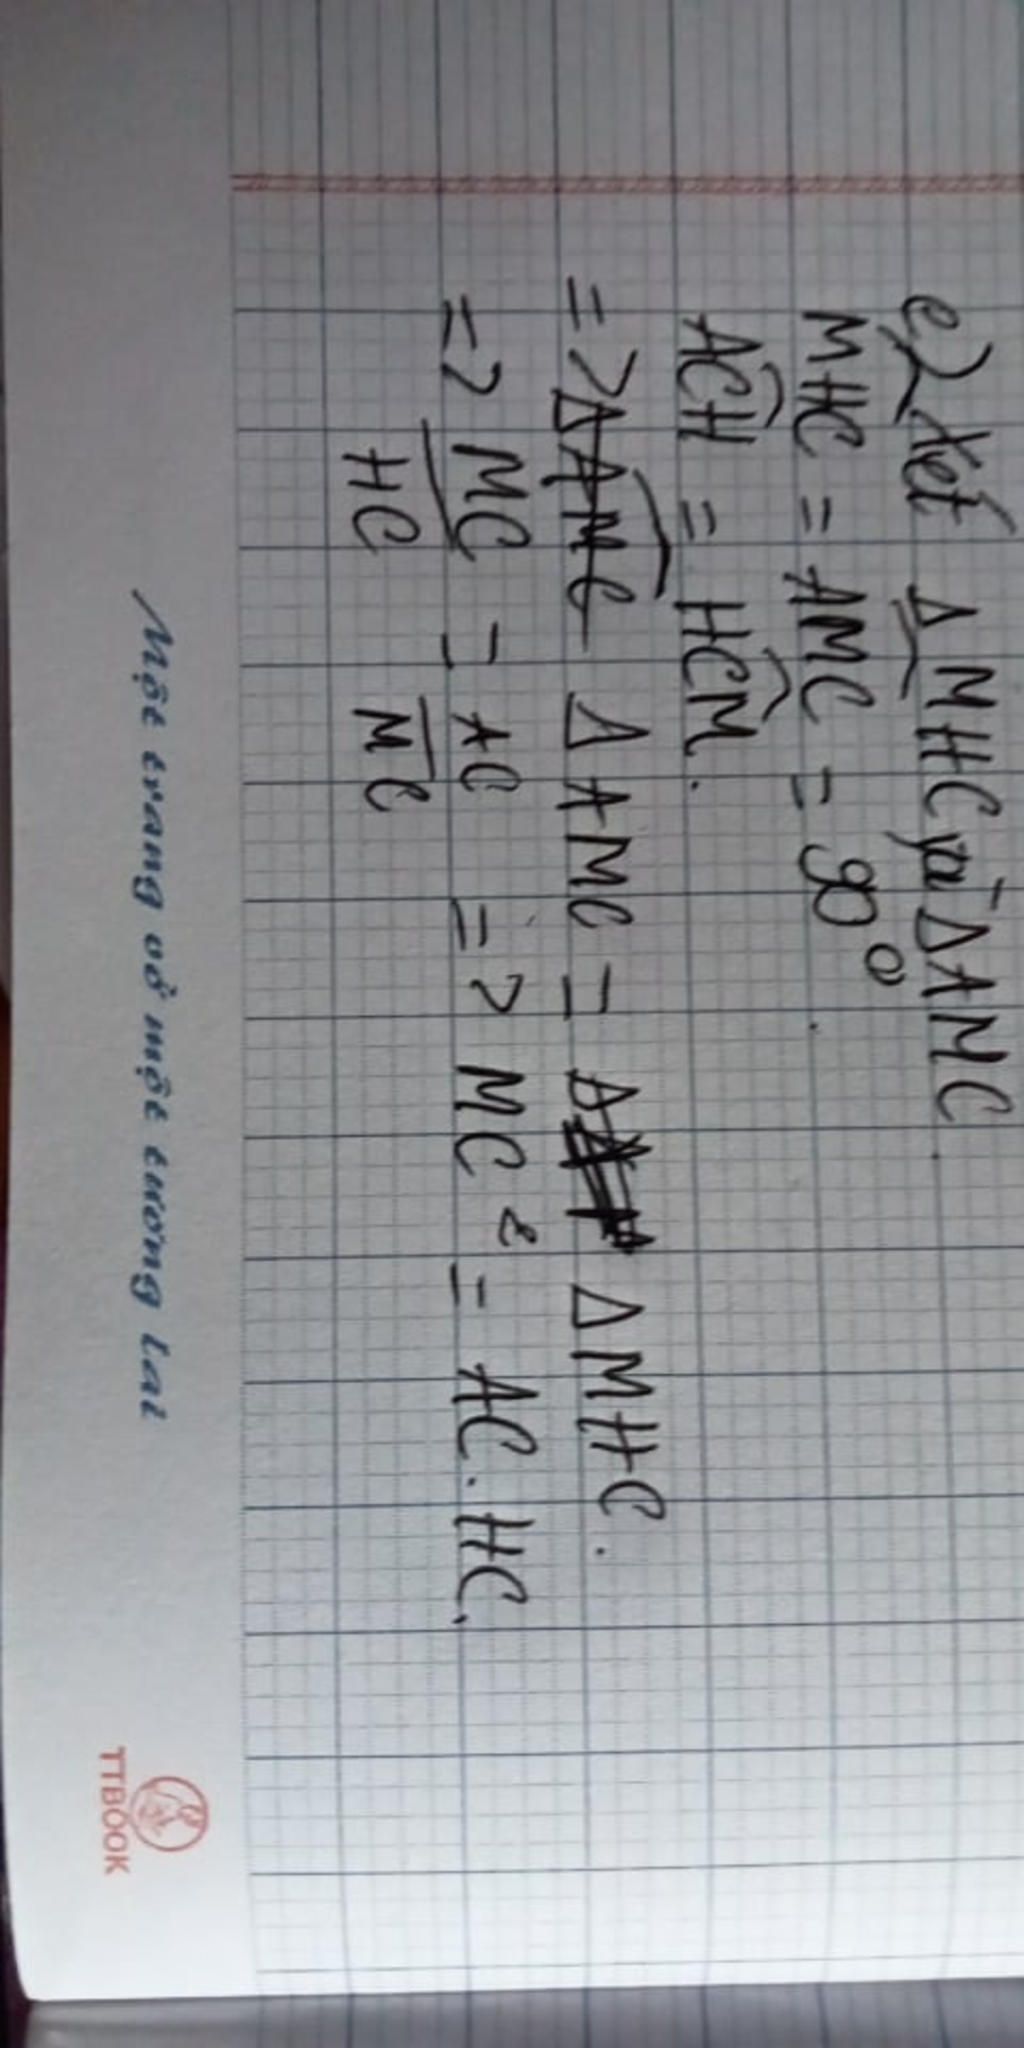 e) Xét Δ MHC và Δ AMC.
MHC = AMC = 90°.
ACH = HCM.
=> Δ AMC Δ AMC = Δ Δ MHC.
=> MC/HC = AC/MC => MC² = AC.HC.
Một trang vở một tương lai
TTBOOK